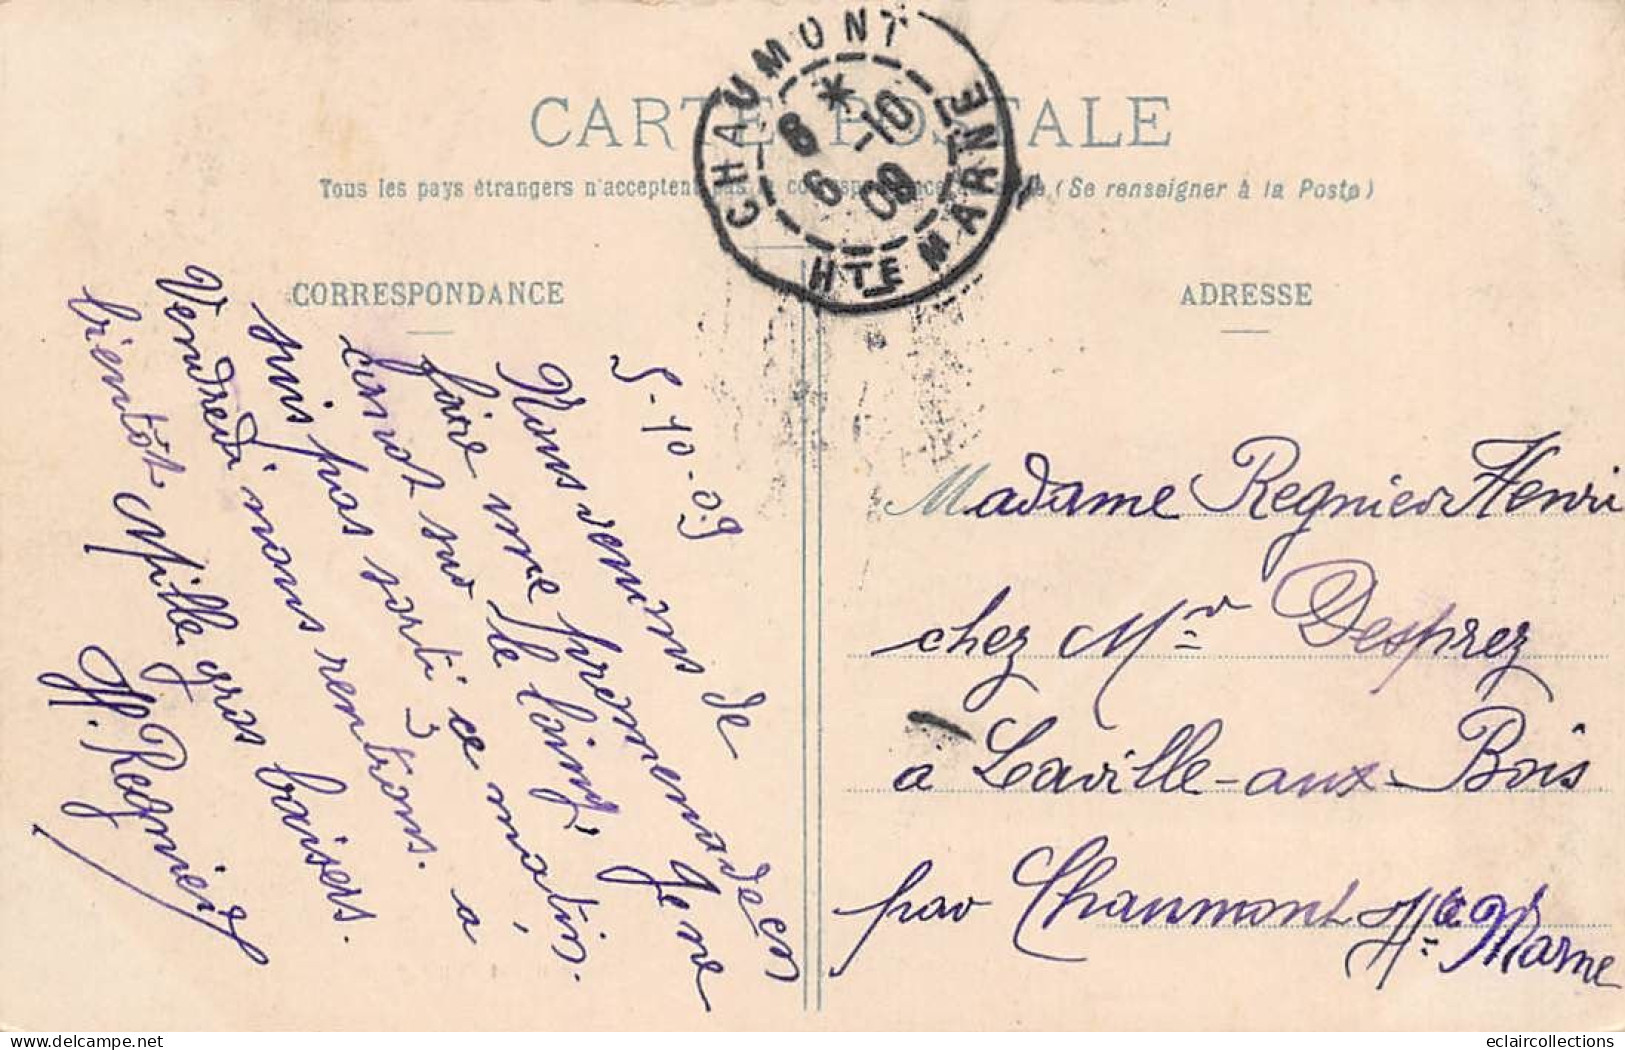 CARTE POSTALE
Tous les pays étrangers n'acceptent pas la correspondance (Se renseigner à la Poste)
CHAUMONT
8 *
6 -10
09
HTE MARNE
CORRESPONDANCE
5-10-09
Nous venons de
faire une promenade en
canot sur le loing, Je ne
suis pas sorti ce matin.
Vendredi nous rentrons. a
bientôt Mille gros baisers.
H. Regnier
ADRESSE
Madame Regnier Henri
chez Mr Desprez
a Laville-aux-Bois
par Chaumont Hte Marne
eclaircollections